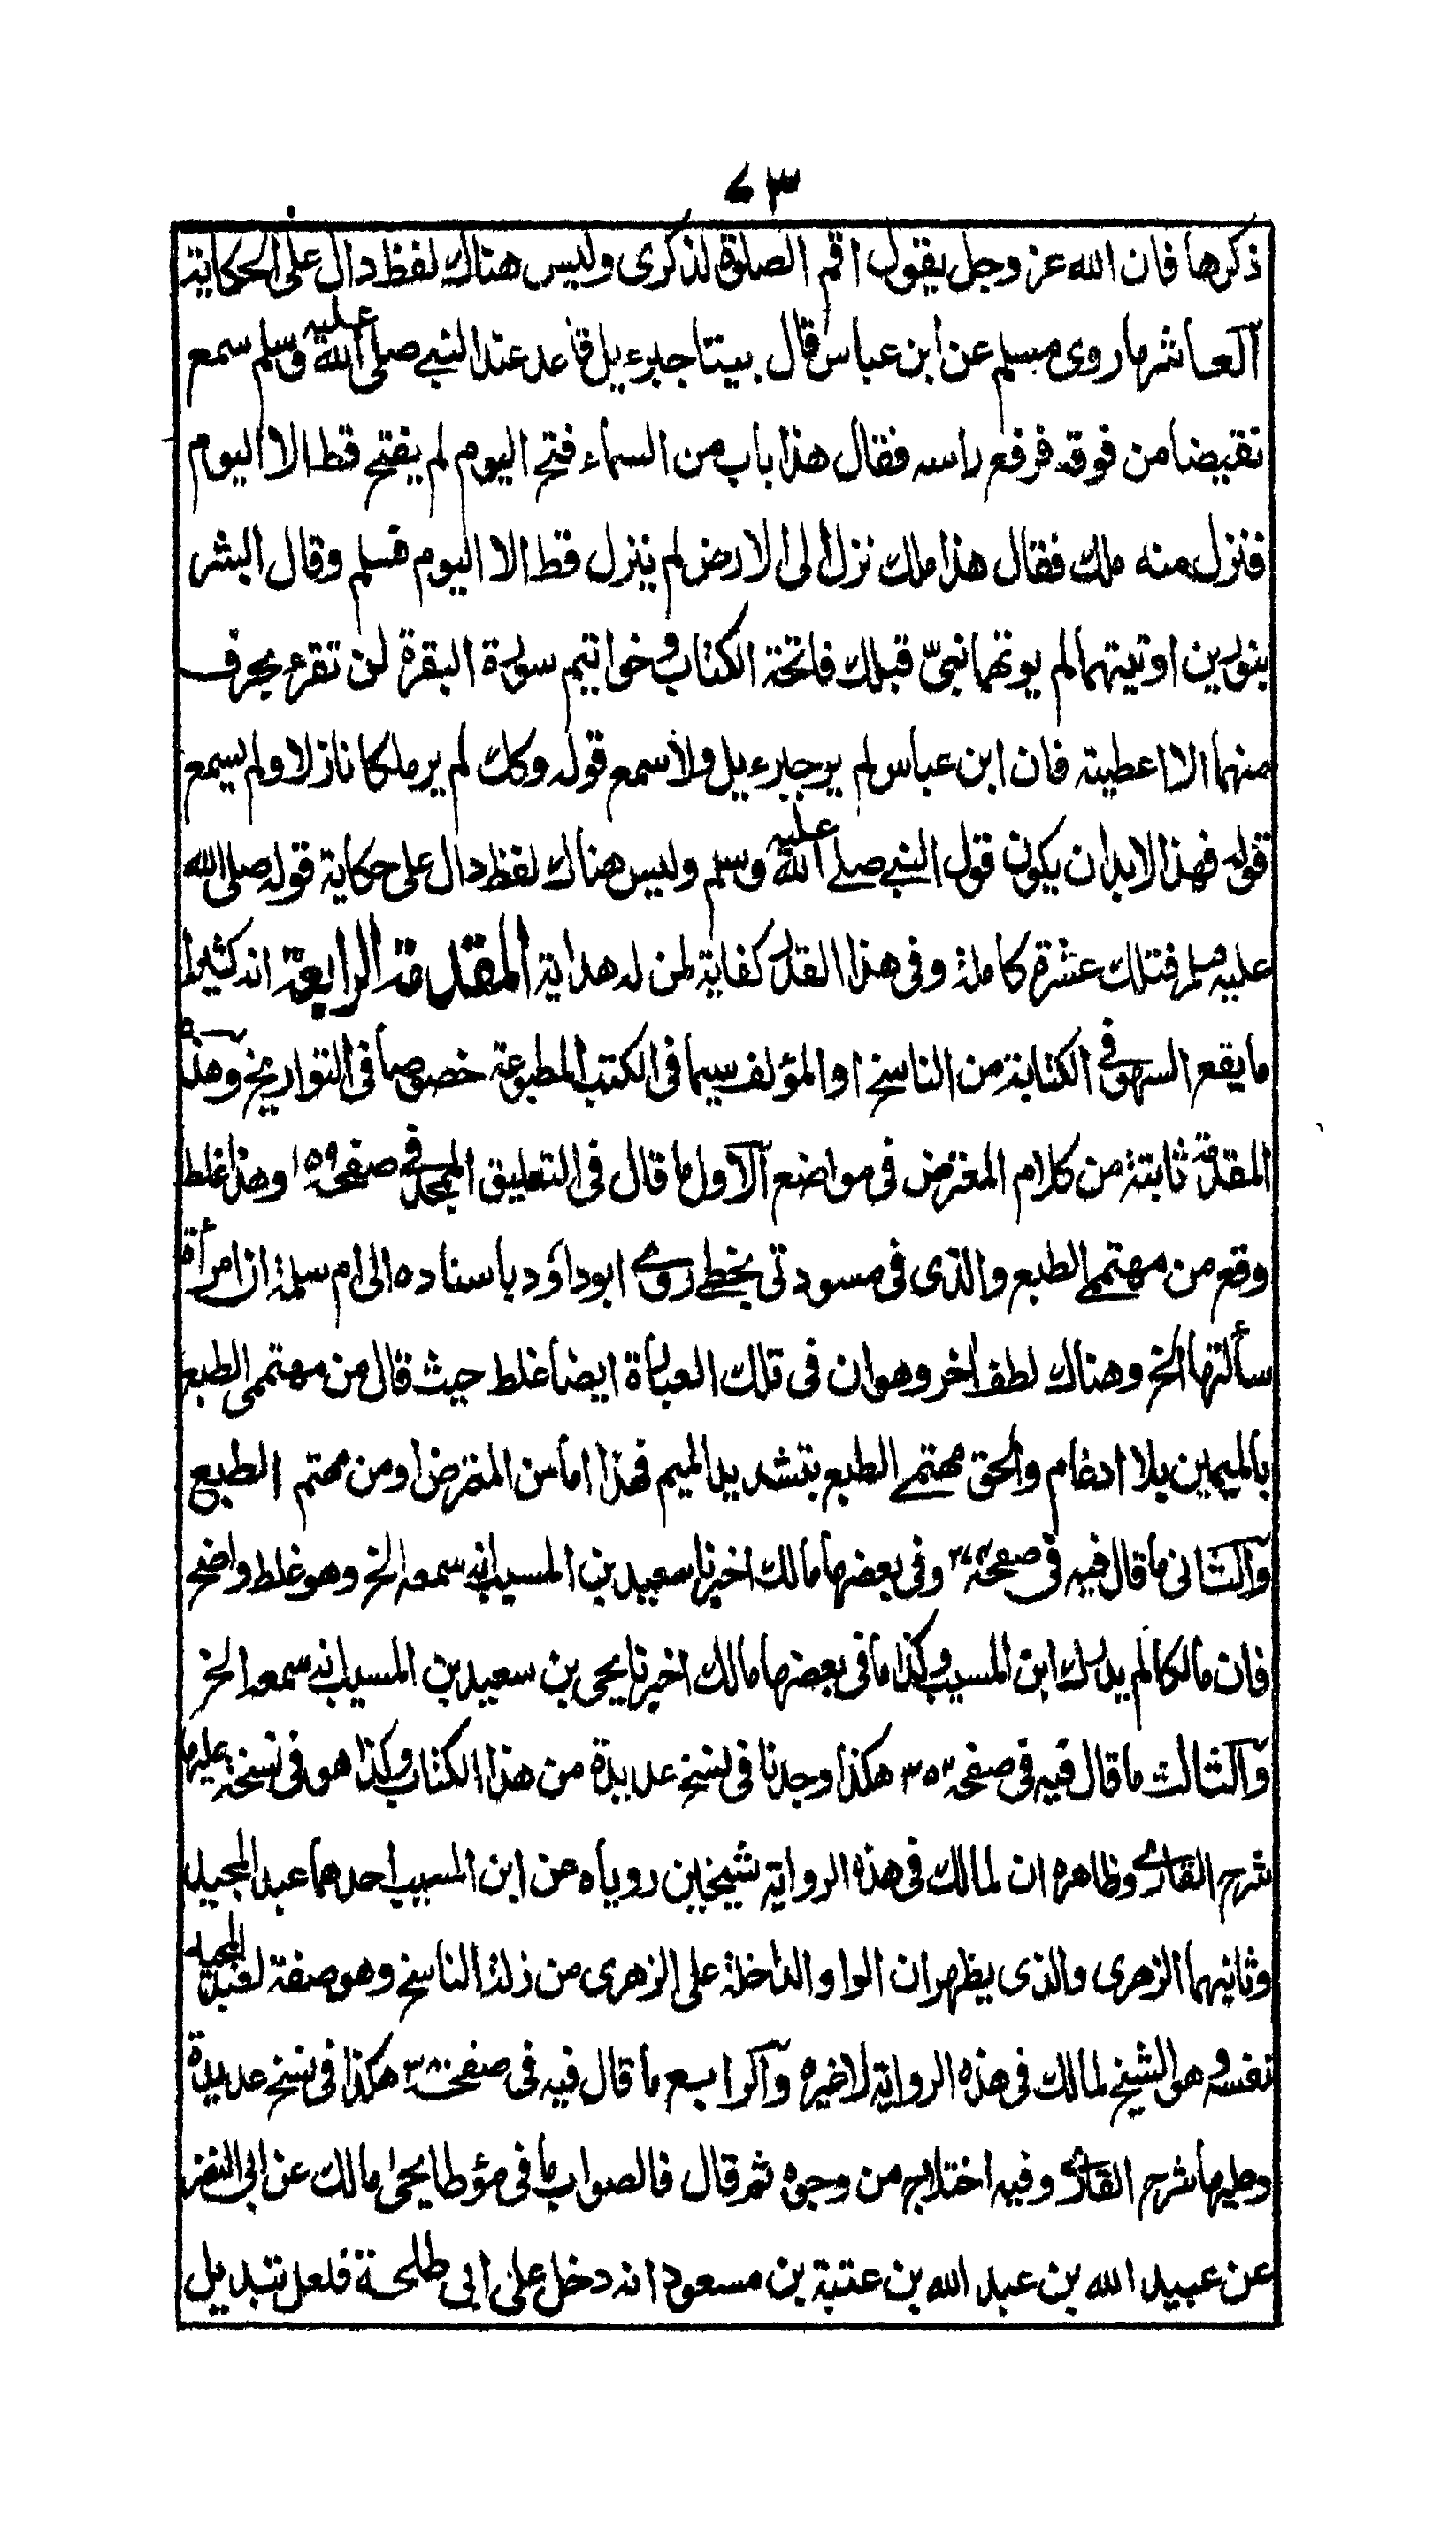 ٧٣
ذكرها فان الله عز وجل يقول اقم الصلوة لذكرى وليس هناك لفظ دال على الحكاية
آلعاشر ما روى مسلم عن ابن عباس قال بينا جبرءيل قاعد عند النبي صلى الله عليه وسلم سمع
نقيضا من فوقه فرفع راسه فقال هذا باب من السماء فتح اليوم لم يفتح قط الا اليوم
فنزل منه ملك فقال هذا ملك نزل الى الارض لم ينزل قط الا اليوم فسلم وقال ابشر
بنورين اوتيتهما لم يوتهما نبيّ قبلك فاتحة الكتاب وخواتيم سورة البقرة لن تقرء بحرف
منهما الا اعطيته فان ابن عباس لم ير جبرءيل ولا سمع قوله وكك لم ير ملكا نازلا ولم يسمع
قوله فهذا لابدان يكون قول النبي صلى الله عليه وسلم وليس هناك لفظ دال على حكاية قوله صلى الله
عليه وسلم فتلك عشرة كاملة وفى هذا القدر كفاية لمن له هداية المقدمة الرابعة انه كثيرا
ما يقع السهو فى الكتابة من الناسخ او المؤلف سيما فى الكتب المطبوعة خصوصا فى التواريخ وهذه
المقدمة ثابتة من كلام المعترض فى مواضع آلاول ما قال فى التعليق الممجد فى صفحه ١٥٩ وهذا غلط
وقع من مهتمى الطبع والذى فى مسودتى بخطى روى ابوداؤد باسناده الى ام سلمة ان امرأة
سألتها الخ وهناك لطف اخر وهوان فى تلك العبارة ايضا غلط حيث قال من مهتممى الطبع
بالميمين بلا ادغام والحق مهتمى الطبع بتشديد الميم فهذا اما من المعترض او من مهتم الطبع
وآلثانى ما قال فيه فى صفحه وفى بعضها مالك اخبرنا سعيد بن المسيب انه سمعه الخ وهو غلط واضح
فان مالكا لم يدرك ابن المسيب وكذا ما فى بعضها مالك اخبرنا يحيى بن سعيد بن المسيب انه سمعه الخ
وآلثالث ما قال فيه فى صفحه ٣٥٣ هكذا وجدنا فى نسخ عديدة من هذا الكتاب وكذا هو فى نسخة عليها
شرح القارى وظاهره ان لمالك فى هذه الرواية شيخين روياه عن ابن المسيب احدهما عبد المجيد
وثانيهما الزهرى والذى يظهر ان الواو الداخلة على الزهرى من زلة الناسخ وهو صفة لعبد المجيد
نفسه وهو الشيخ لمالك فى هذه الرواية لا غيره وآلرابع ما قال فيه فى صفحة هكذا فى نسخ عديدة
وعليها شرح القارى وفيه اختلاج من وجوه ثم قال فالصواب ما فى مؤطا يحيى مالك عن ابى النضر
عن عبيد الله بن عبد الله بن عتبة بن مسعود انه دخل على ابى طلحة فلعل تبديل